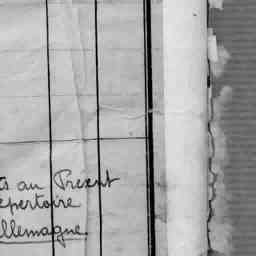 ts au Présent
épertoire
llemagne